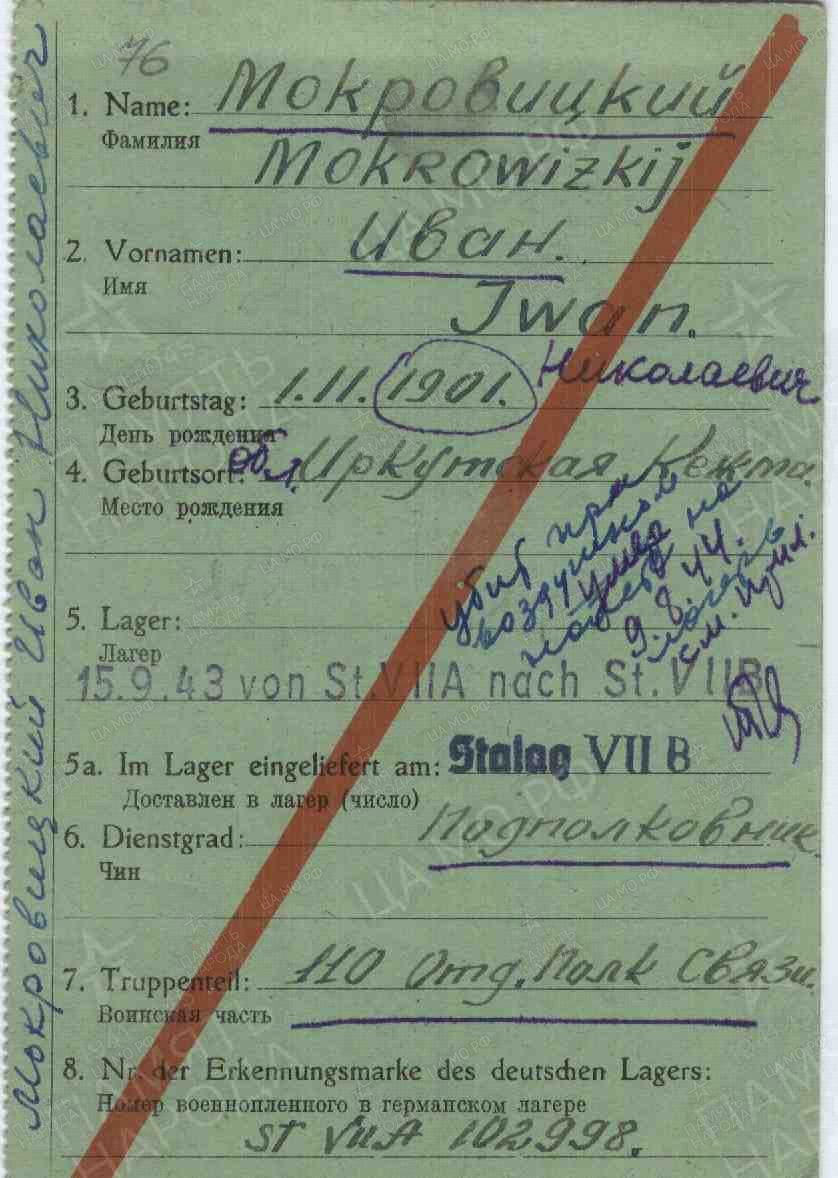 76
1. Name: Мокровицкий
Фамилия
Mokrowizkij
2. Vornamen: Иван.
Имя
Iwan.
Николаевич
3. Geburtstag: 1.11.1901.
День рождения
4. Geburtsort: обл. Иркутская
Место рождения
убит при
воздушном
на
9.8.44.
5. Lager:
Лагерь
15.9.43 von St.VIIA nach St.VIIB
5a. Im Lager eingeliefert am: Stalag VII B
Доставлен в лагерь (число)
6. Dienstgrad: Подполковник.
Чин
7. Truppenteil: 110 Отд. Полк Связи.
Воинская часть
8. Nr. der Erkennungsmarke des deutschen Lagers:
Номер военнопленного в германском лагере
St VIIA 102998.
Мокровицкий Иван Николаевич
ЦАМО.РФ
ПАМЯТЬ НАРОДА